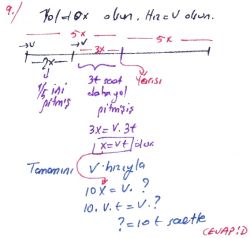 9./ Yol=10x olsun, Hız=V olsun.
5x 5x
→V →V
2x 3x
1/5 ini gitmiş
3t saat daha yol gitmişiş
Yarısı
3x = V. 3t
x = vt olur
Tamamını V hızıyla
10x = V. ?
10. V. t = V. ?
? = 10t saatte
CEVAP:D